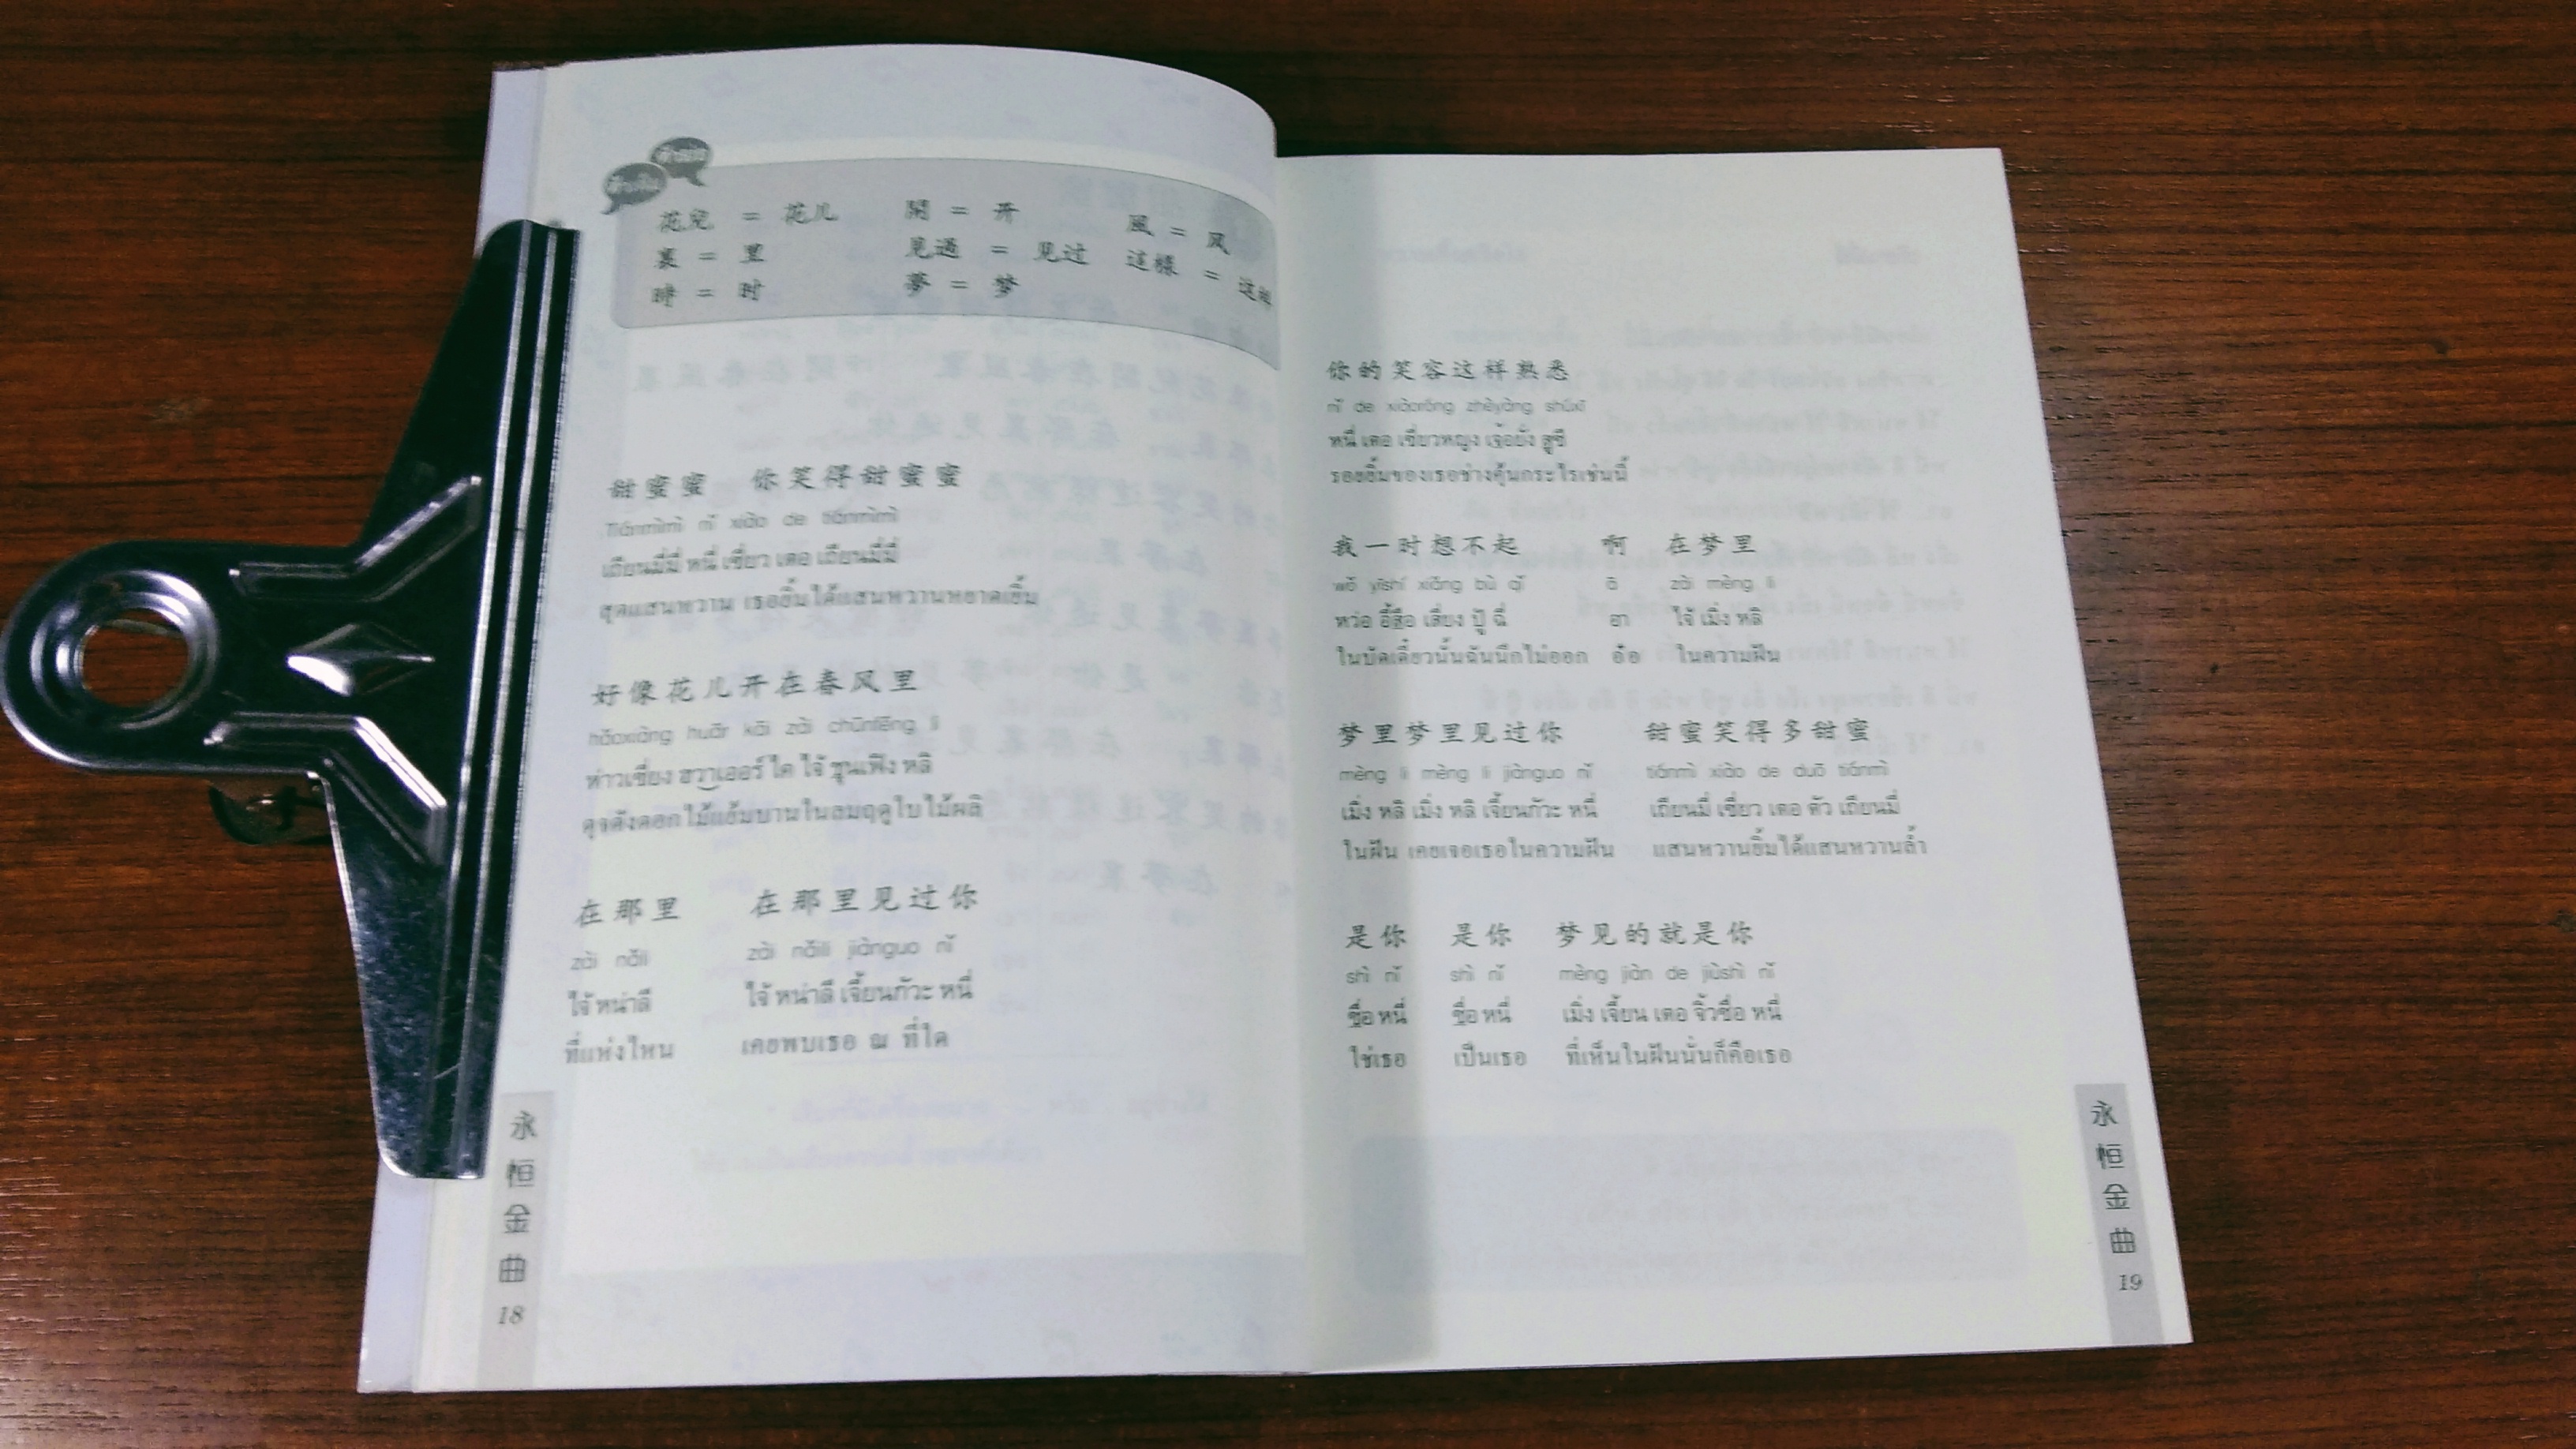 花兒 = 花儿 開 = 开 風 = 风
裏 = 里 見過 = 见过 這樣 =
時 = 时 夢 = 梦
甜蜜蜜 你笑得甜蜜蜜
Tiánmìmì nǐ xiào de tiánmìmì
เถียนมี่มี่ หนี่ เซี่ยว เตอ เถียนมี่มี่
สุดแสนหวาน เธอยิ้มได้แสนหวานหยาดเยิ้ม
好像花儿开在春风里
hǎoxiàng huār kāi zài chūnfēng li
ห่าวเซี่ยง ฮวาเออร์ ไค ไจ้ ชุนเฟิง หลิ
ดุจดั่งดอกไม้แย้มบานในลมฤดูใบไม้ผลิ
在那里 在那里见过你
zài nǎli zài nǎili jiànguo nǐ
ไจ้ หน่าลี ไจ้ หน่าลี เจี้ยนกัวะ หนี่
ที่แห่งไหน เคยพบเธอ ณ ที่ใด
永恒金曲
18
你的笑容这样熟悉
nǐ de xiàoróng zhèyàng shúxī
หนี่ เตอ เซี่ยวหญง เจ้อยั่ง สูซี
รอยยิ้มของเธอช่างคุ้นกระไรเช่นนี้
我一时想不起 啊 在梦里
wǒ yīshí xiǎng bù qǐ ā zài mèng li
หว่อ อี้สือ เสี่ยง ปู้ ฉี่ อา ไจ้ เมิ่ง หลิ
ในบัดเดี๋ยวนั้นฉันนึกไม่ออก อ๋อ ในความฝัน
梦里梦里见过你 甜蜜笑得多甜蜜
mèng li mèng li jiànguo nǐ tiánmì xiào de duō tiánmì
เมิ่ง หลิ เมิ่ง หลิ เจี้ยนกัวะ หนี่ เถียนมี่ เซี่ยว เตอ ตัว เถียนมี่
ในฝัน เคยเจอเธอในความฝัน แสนหวานยิ้มได้แสนหวานล้ำ
是你 是你 梦见的就是你
shì nǐ shì nǐ mèng jiàn de jiùshì nǐ
ซื่อ หนี่ ซื่อ หนี่ เมิ่ง เจี้ยน เตอ จิ้วซื่อ หนี่
ใช่เธอ เป็นเธอ ที่เห็นในฝันนั่นก็คือเธอ
永恒金曲
19